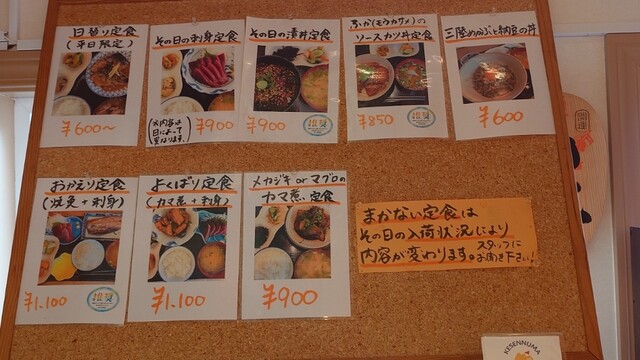 日替り定食
(平日限定)
¥600~
その日の刺身定食
(※内容は
日によって
異なります。)
¥900
その日の漬丼定食
¥900
ふか(モウカサメ)の
ソースカツ丼定食
¥850
三陸めかぶと納豆の丼
¥600
おかえり定食
(焼魚+刺身)
¥1,100
よくばり定食
(カマ煮+刺身)
¥1,100
メカジキorマグロの
カマ煮定食
¥900
まかない定食は
その日の入荷状況により
内容が変わります。
スタッフに
お聞き下さい!
開運
KESENNUMA